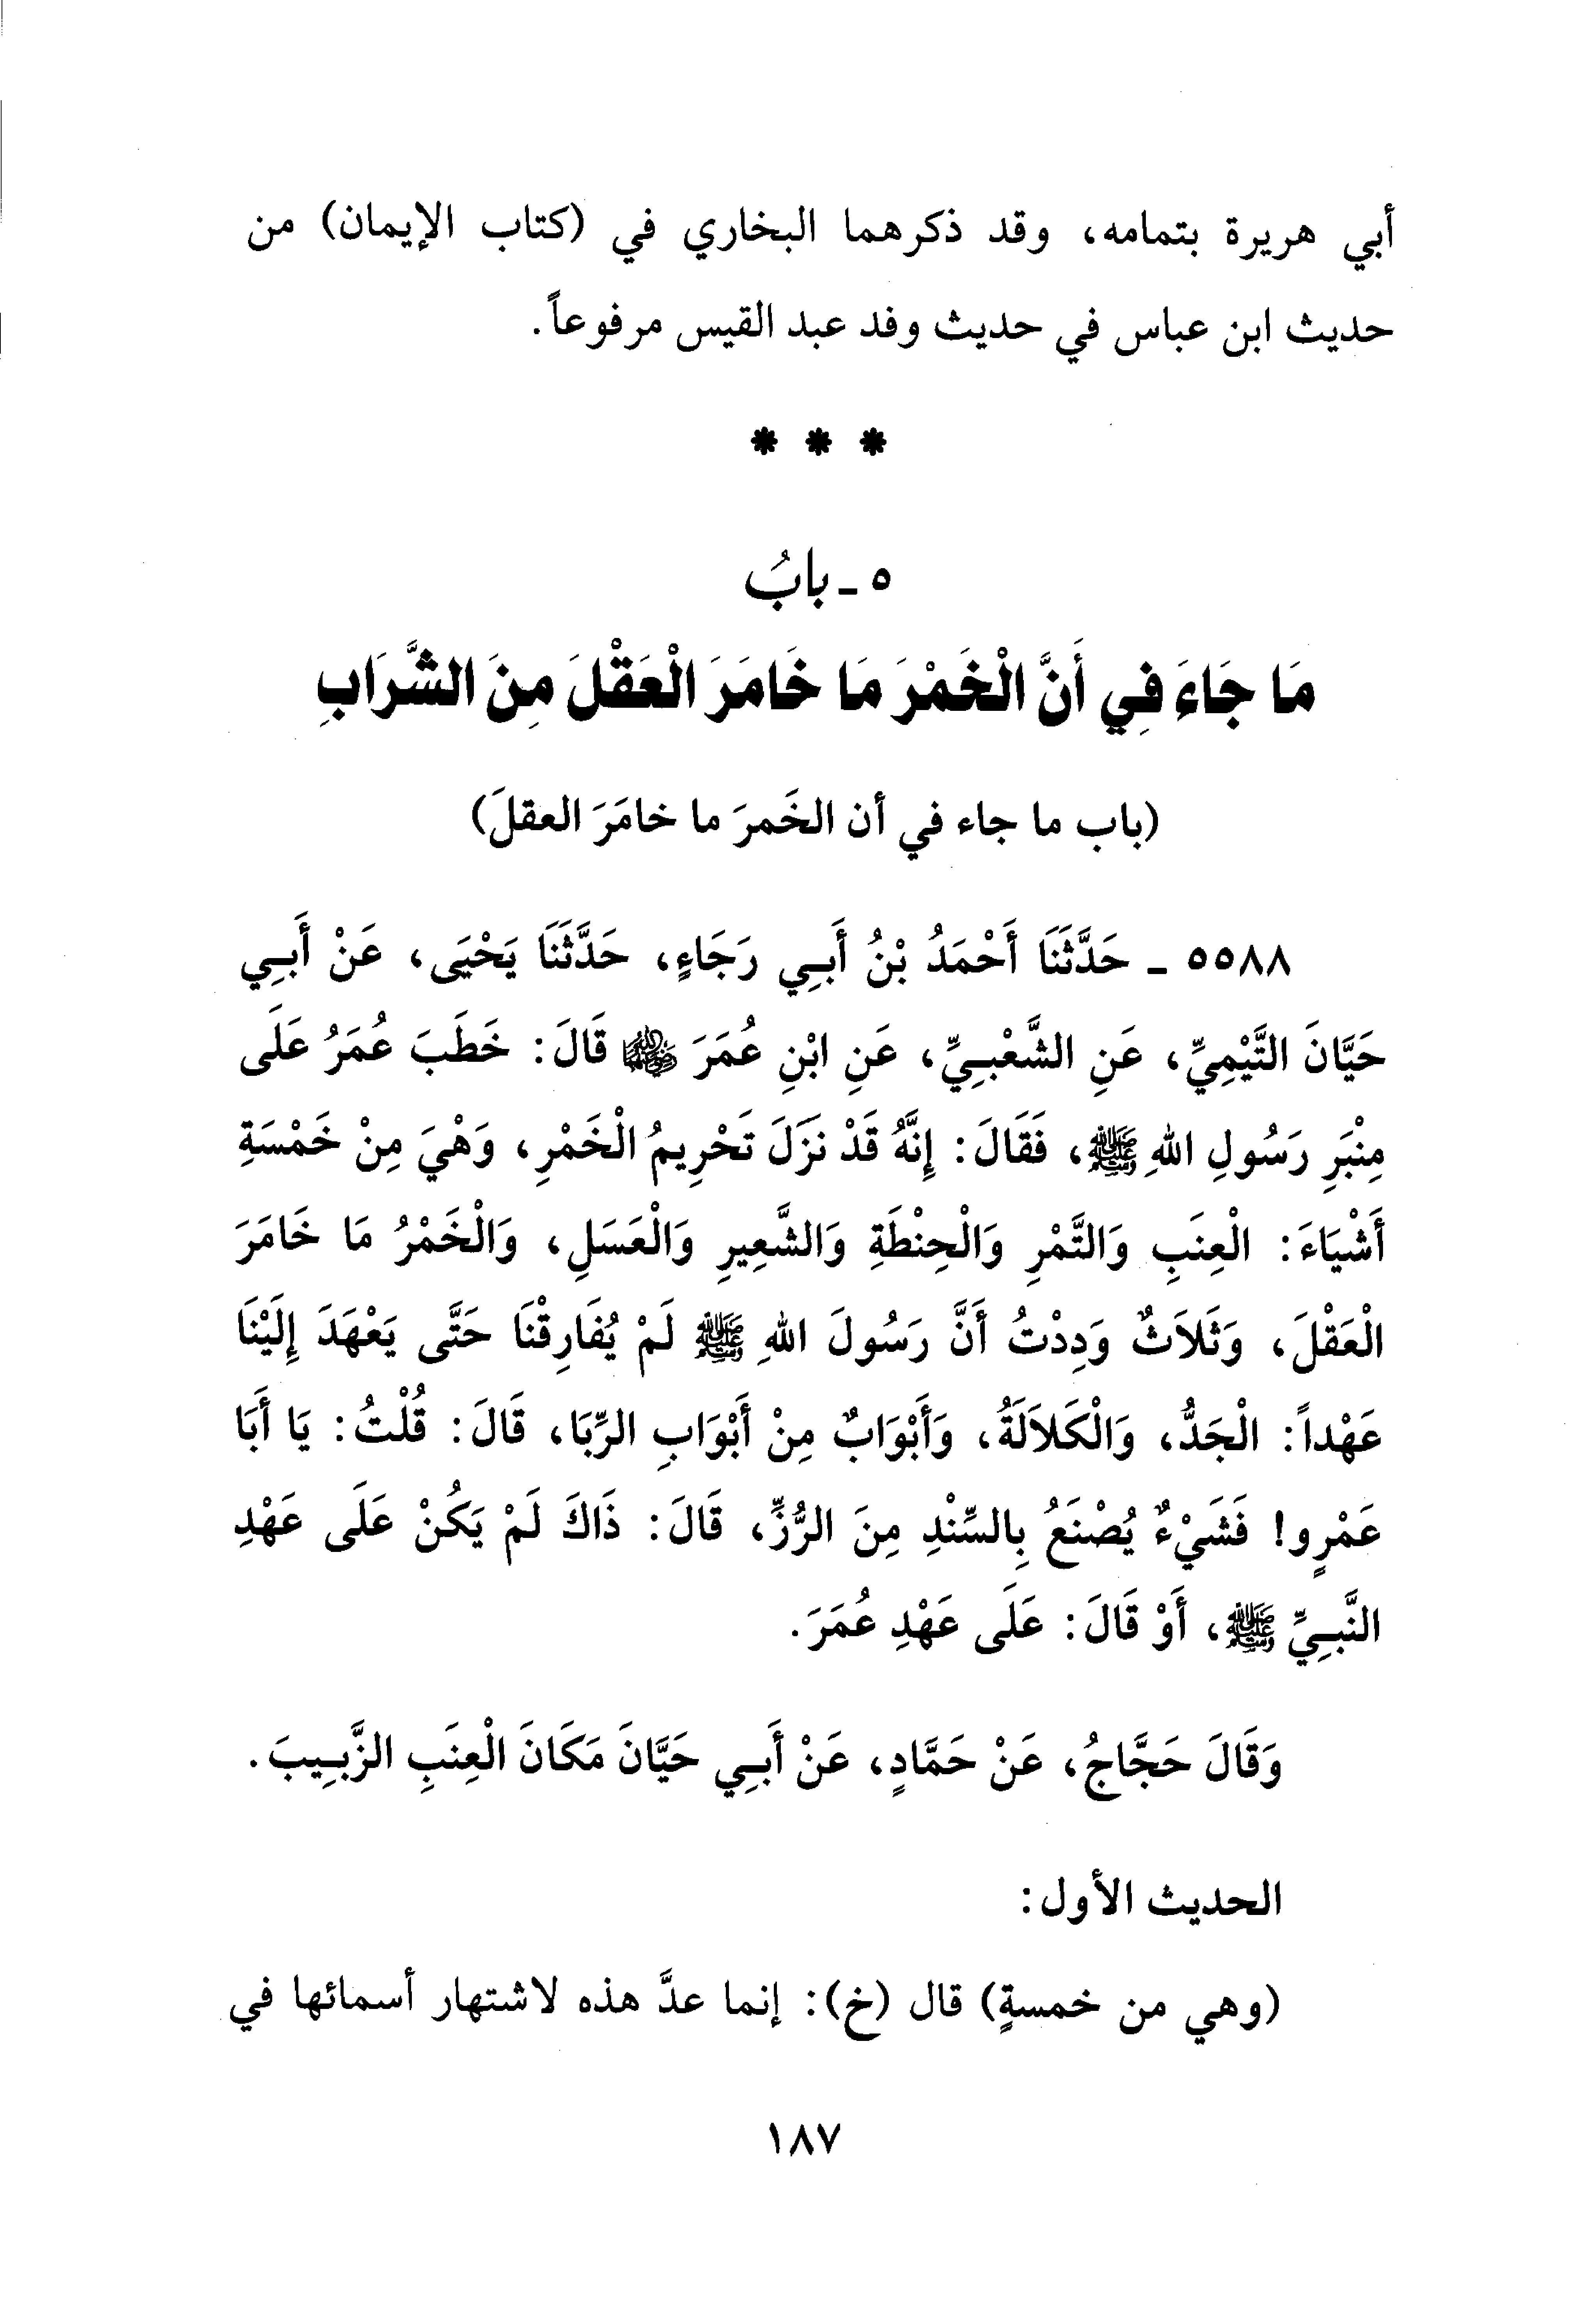 أبي هريرة بتمامه، وقد ذكرهما البخاري في (كتاب الإيمان) من
حديث ابن عباس في حديث وفد عبد القيس مرفوعاً.
* * *
٥ - بابُ
مَا جَاءَ فِي أَنَّ الْخَمْرَ مَا خَامَرَ الْعَقْلَ مِنَ الشَّرَابِ
(باب ما جاء في أن الخَمرَ ما خامَرَ العقلَ)
٥٥٨٨ - حَدَّثَنَا أَحْمَدُ بْنُ أَبِي رَجَاءٍ، حَدَّثَنَا يَحْيَى، عَنْ أَبِي
حَيَّانَ التَّيْمِيِّ، عَنِ الشَّعْبِيِّ، عَنِ ابْنِ عُمَرَ ﵄ قَالَ: خَطَبَ عُمَرُ عَلَى
مِنْبَرِ رَسُولِ اللهِ ﷺ، فَقَالَ: إِنَّهُ قَدْ نَزَلَ تَحْرِيمُ الْخَمْرِ، وَهْيَ مِنْ خَمْسَةِ
أَشْيَاءَ: الْعِنَبِ وَالتَّمْرِ وَالْحِنْطَةِ وَالشَّعِيرِ وَالْعَسَلِ، وَالْخَمْرُ مَا خَامَرَ
الْعَقْلَ، وَثَلاَثٌ وَدِدْتُ أَنَّ رَسُولَ اللهِ ﷺ لَمْ يُفَارِقْنَا حَتَّى يَعْهَدَ إِلَيْنَا
عَهْداً: الْجَدُّ، وَالْكَلاَلَةُ، وَأَبْوَابٌ مِنْ أَبْوَابِ الرِّبَا، قَالَ: قُلْتُ: يَا أَبَا
عَمْرٍو! فَشَيْءٌ يُصْنَعُ بِالسِّنْدِ مِنَ الرُّزِّ، قَالَ: ذَاكَ لَمْ يَكُنْ عَلَى عَهْدِ
النَّبِيِّ ﷺ، أَوْ قَالَ: عَلَى عَهْدِ عُمَرَ.
وَقَالَ حَجَّاجُ، عَنْ حَمَّادٍ، عَنْ أَبِي حَيَّانَ مَكَانَ الْعِنَبِ الزَّبِيبَ.
الحديث الأول:
(وهي من خمسةٍ) قال (خ): إنما عدَّ هذه لاشتهار أسمائها في
١٨٧